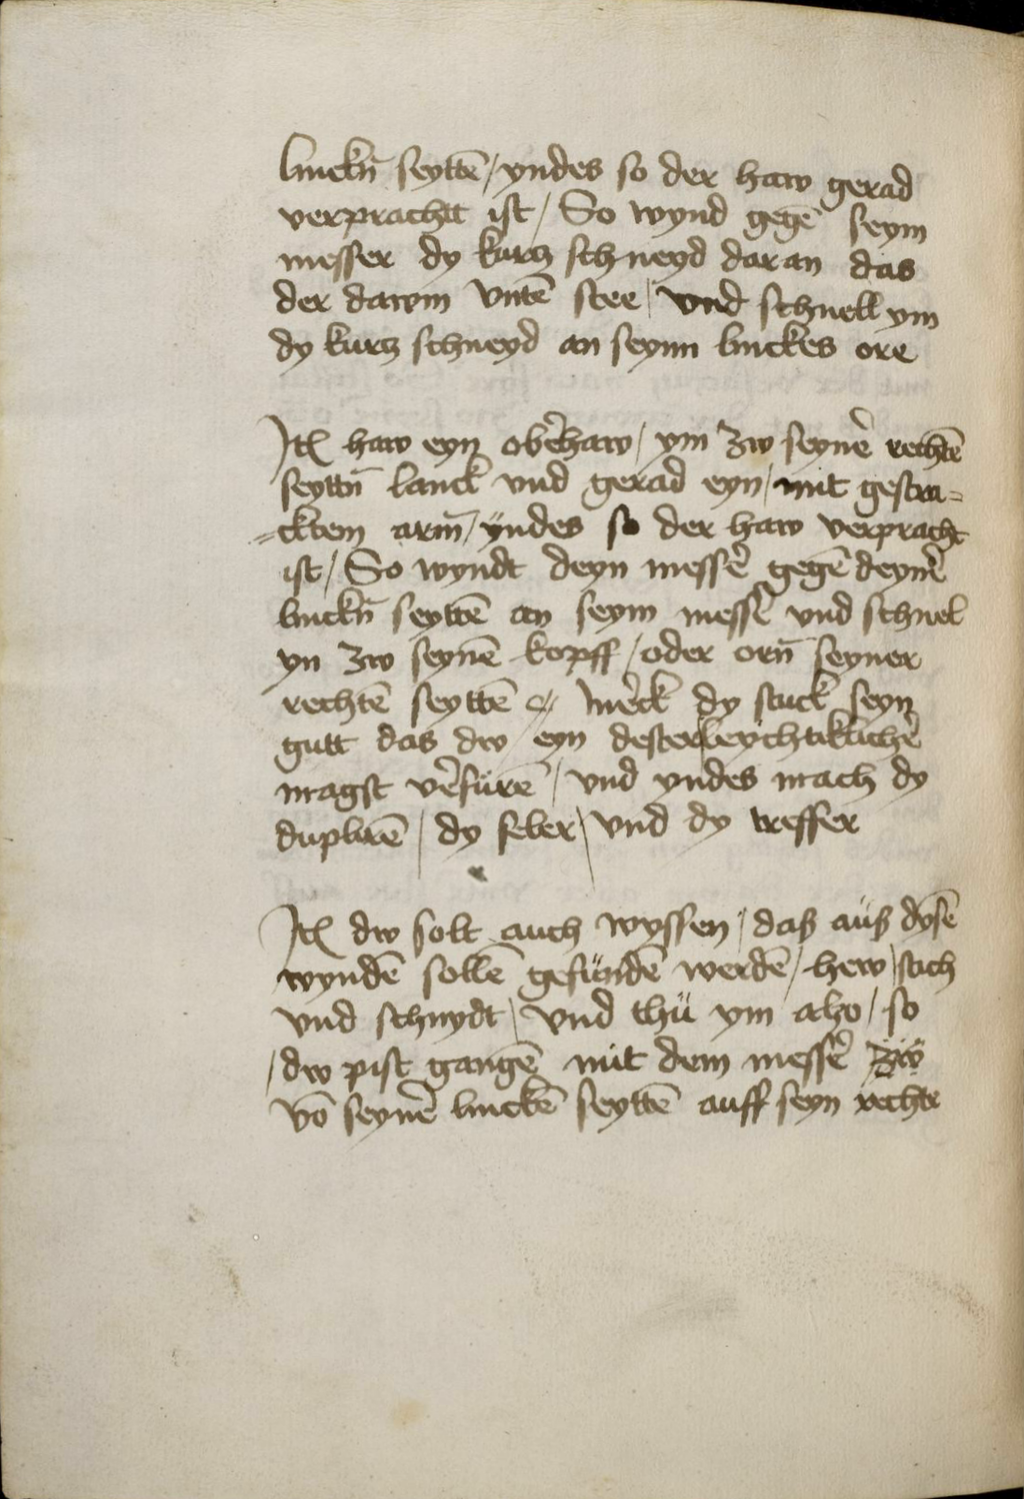 linckñ seyttē / yndes so der haw gerad
verprachtt ist / So wynd gegē seym
messer dy kurcz schneyd daran das
der dawm vntē stee / vnd schnell ym
dy kurcz schneyd an seynn linckes ore
Itm̄ haw eyn obe͂rhaw / ym zw seyne͂ rechtē
seyttñ lanck vnd gerad eyn / mit gestra=
=cktem arm̄ / ÿndes so der haw verpracht
ist / So wyndt deyn messe͂ gegē deyne͂
linckñ seyttē an seym messe͂ vnd schnel
yn zw seynē kopff / oder orñ seyner
rechtē seyttē me͂ck dy stuck seyn
gutt das dw eyn dester leychtiklichē
magst ve͂fürē / vnd yndes mach dy
duplirē / dy feler / vnd dy treffer
Itm̄ dw solt auch wyssen / daß auß dysē
wyndē sollē gefundē werdē / hew / stich
vnd schnydt / Vnd thü ym also / so
/ dw pist gangē mit dem messe͂ zw
vō seyne͂ linckē seyttē auff seyn rechte